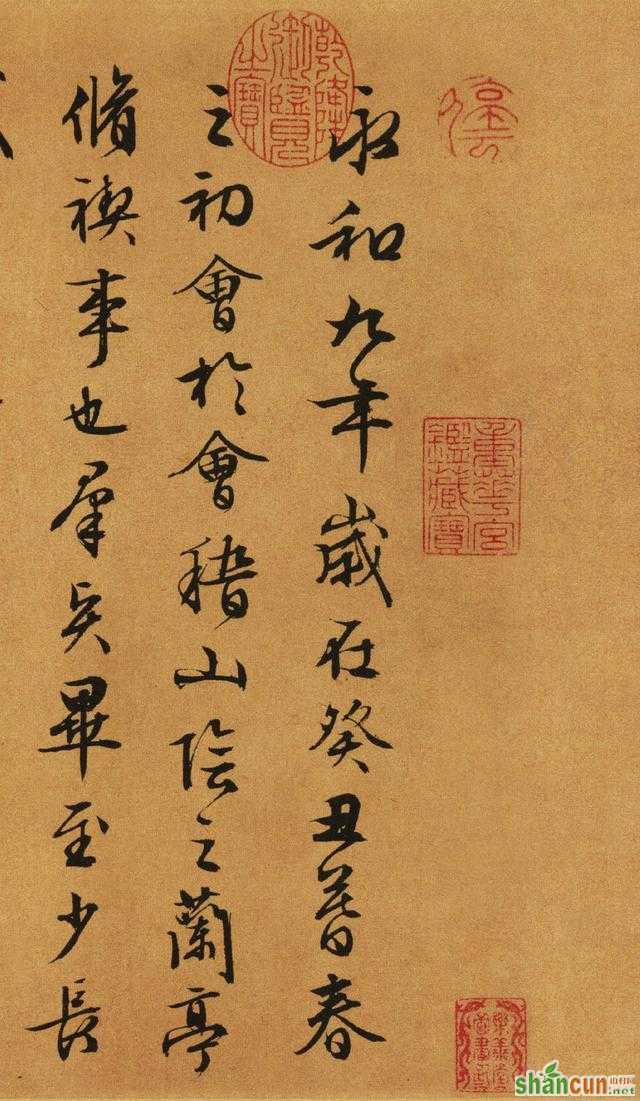 永和九年歲在癸丑暮春
之初會於會稽山陰之蘭亭
脩禊事也羣賢畢至少長
乾隆御覽之寶
重華宮鑑藏寶
樂善堂圖書記
shancun
山村网
.net